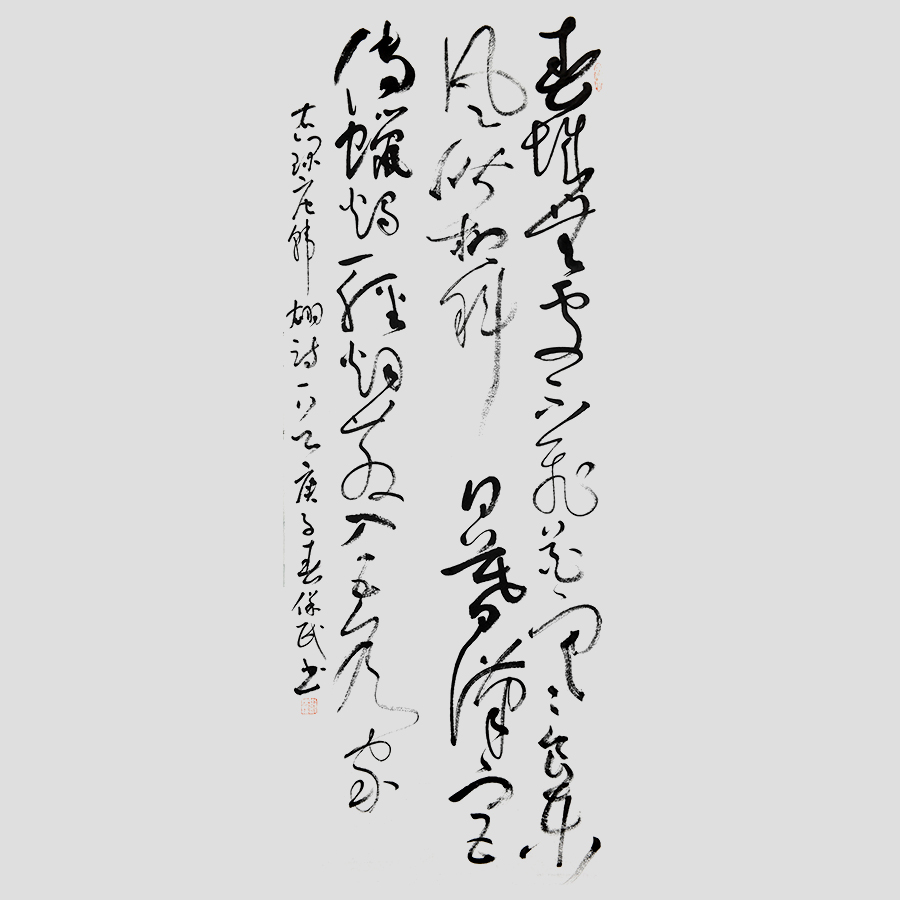 春城無處不飛花寒食東
風御柳斜日暮漢宮
傳蠟燭輕烟散入五侯家
唐韓翃詩一首庚子春保民书